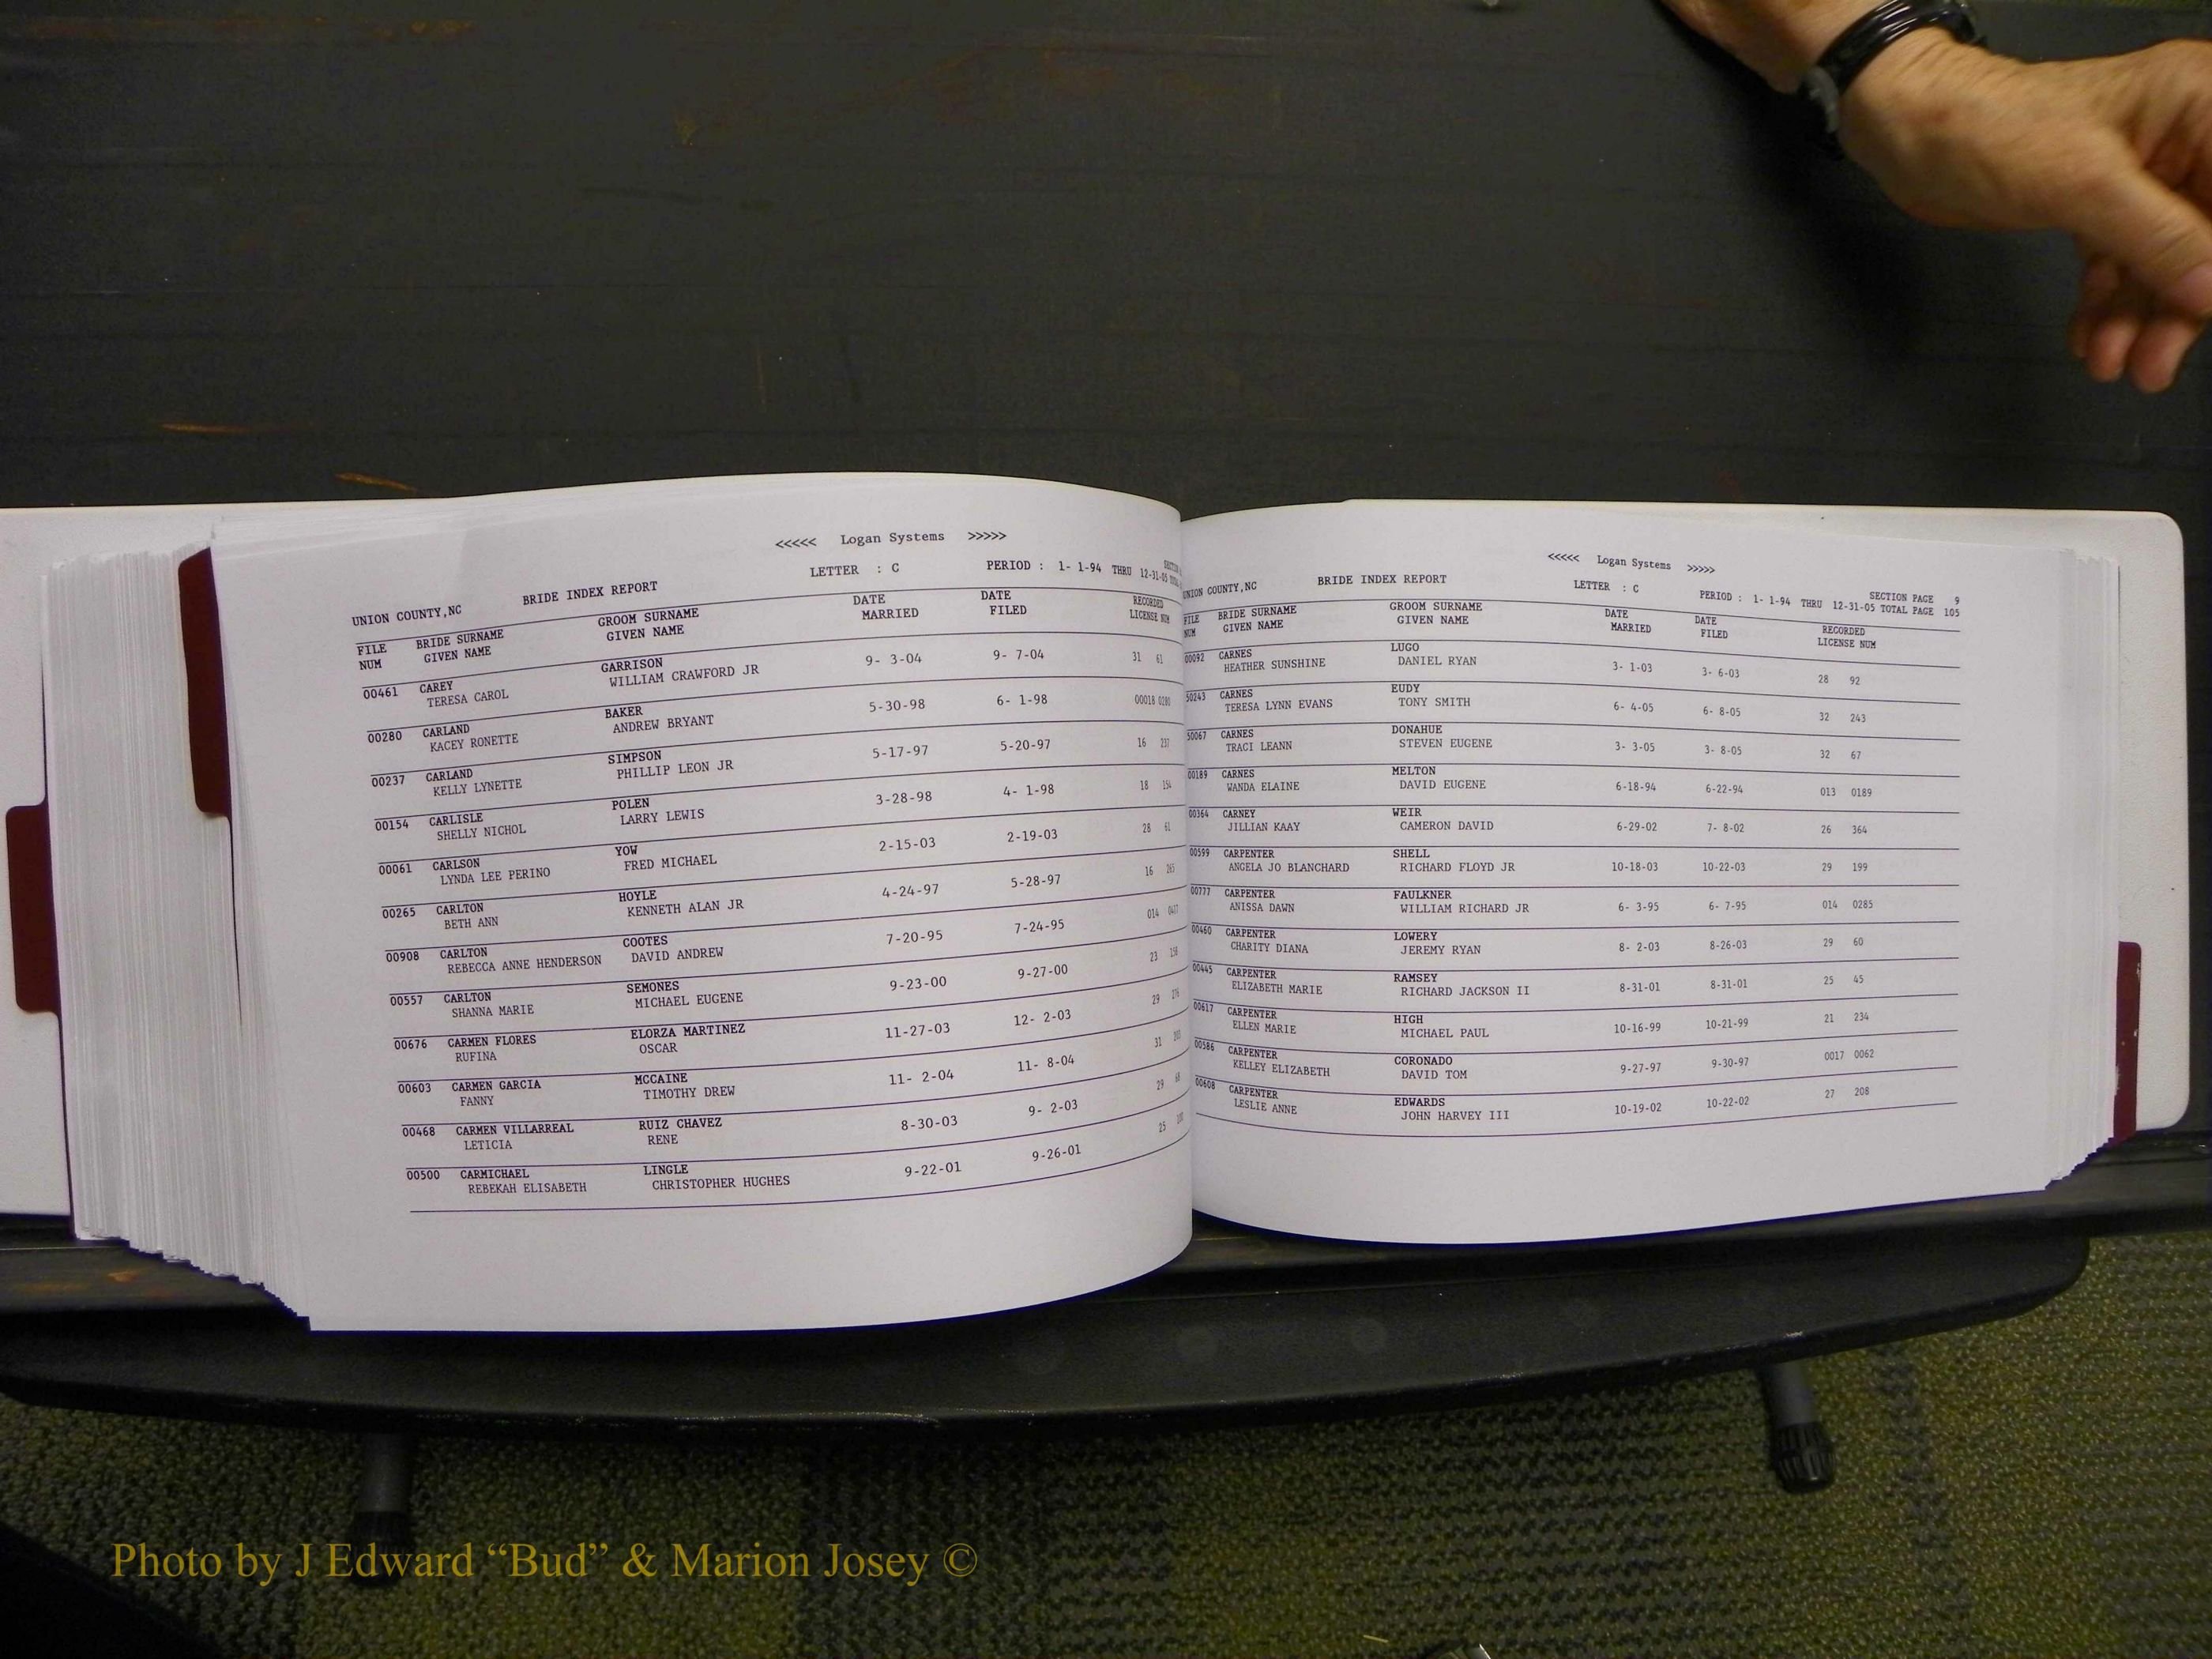 <<<<< Logan Systems >>>>>
UNION COUNTY,NC BRIDE INDEX REPORT LETTER : C PERIOD : 1- 1-94 THRU 12-31-05
FILE BRIDE SURNAME GROOM SURNAME DATE DATE RECORDED
NUM GIVEN NAME GIVEN NAME MARRIED FILED LICENSE NUM
00461 CAREY GARRISON 9- 3-04 9- 7-04 31 61
TERESA CAROL WILLIAM CRAWFORD JR
00280 CARLAND BAKER 5-30-98 6- 1-98 00018 0280
KACEY RONETTE ANDREW BRYANT
00237 CARLAND SIMPSON 5-17-97 5-20-97 16 237
KELLY LYNETTE PHILLIP LEON JR
00154 CARLISLE POLEN 3-28-98 4- 1-98 18 154
SHELLY NICHOL LARRY LEWIS
00061 CARLSON YOW 2-15-03 2-19-03 28 61
LYNDA LEE PERINO FRED MICHAEL
00265 CARLTON HOYLE 4-24-97 5-28-97 16 265
BETH ANN KENNETH ALAN JR
00908 CARLTON COOTES 7-20-95 7-24-95 014
REBECCA ANNE HENDERSON DAVID ANDREW
00557 CARLTON SEMONES 9-23-00 9-27-00 23
SHANNA MARIE MICHAEL EUGENE
00676 CARMEN FLORES ELORZA MARTINEZ 11-27-03 12- 2-03 29
RUFINA OSCAR
00603 CARMEN GARCIA MCCAINE 11- 2-04 11- 8-04 31
FANNY TIMOTHY DREW
00468 CARMEN VILLARREAL RUIZ CHAVEZ 8-30-03 9- 2-03 29 68
LETICIA RENE
00500 CARMICHAEL LINGLE 9-22-01 9-26-01 25
REBEKAH ELISABETH CHRISTOPHER HUGHES
<<<<< Logan Systems >>>>>
UNION COUNTY,NC BRIDE INDEX REPORT LETTER : C SECTION PAGE 9
PERIOD : 1- 1-94 THRU 12-31-05 TOTAL PAGE 105
FILE BRIDE SURNAME GROOM SURNAME DATE DATE RECORDED
NUM GIVEN NAME GIVEN NAME MARRIED FILED LICENSE NUM
00092 CARNES LUGO 3- 1-03 3- 6-03 28 92
HEATHER SUNSHINE DANIEL RYAN
50243 CARNES EUDY 6- 4-05 6- 8-05 32 243
TERESA LYNN EVANS TONY SMITH
50067 CARNES DONAHUE 3- 3-05 3- 8-05 32 67
TRACI LEANN STEVEN EUGENE
00189 CARNES MELTON 6-18-94 6-22-94 013 0189
WANDA ELAINE DAVID EUGENE
00364 CARNEY WEIR 6-29-02 7- 8-02 26 364
JILLIAN KAAY CAMERON DAVID
00599 CARPENTER SHELL 10-18-03 10-22-03 29 199
ANGELA JO BLANCHARD RICHARD FLOYD JR
00777 CARPENTER FAULKNER 6- 3-95 6- 7-95 014 0285
ANISSA DAWN WILLIAM RICHARD JR
00460 CARPENTER LOWERY 8- 2-03 8-26-03 29 60
CHARITY DIANA JEREMY RYAN
00445 CARPENTER RAMSEY 8-31-01 8-31-01 25 45
ELIZABETH MARIE RICHARD JACKSON II
00617 CARPENTER HIGH 10-16-99 10-21-99 21 234
ELLEN MARIE MICHAEL PAUL
00586 CARPENTER CORONADO 9-27-97 9-30-97 0017 0062
KELLEY ELIZABETH DAVID TOM
00608 CARPENTER EDWARDS 10-19-02 10-22-02 27 208
LESLIE ANNE JOHN HARVEY III
Photo by J Edward “Bud” & Marion Josey ©